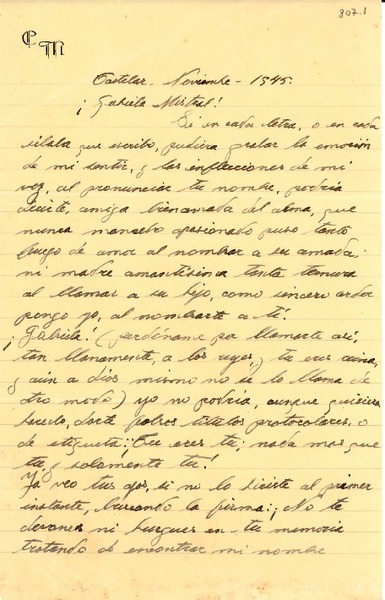 807.1
C M
Castelar - Noviembre - 1945.
¡Gabriela Mistral!
Si en cada letra, o en cada
sílaba que escribo, pudiera grabar la emoción
de mi sentir, y las inflecciones de mi
voz, al pronunciar tu nombre, podría
decirte, amiga bienamada del alma, que
nunca mancebo apasionado puso tanto
fuego de amor al nombrar a su amada;
ni madre amantísima tanta ternura
al llamar a su hijo, como sincero ardor
pongo yo, al nombrarte a tí.
¡Gabriela! (perdóname por llamarte así,
tan llanamente, a los reyes, y tu eres una,
y aún a dios mismo no se lo llama de
otro modo) yo no podría, aunque quisiera
hacerlo, darte pobres títulos protocolares, o
de etiqueta; ¡Tu eres tu; nada mas que
tu, y solamente tu!
Ya veo tus ojos, si no lo hiciste al primer
instante, buscando la firma: ¡No te
devanes ni hurgues en tu memoria
tratando de encontrar mi nombre